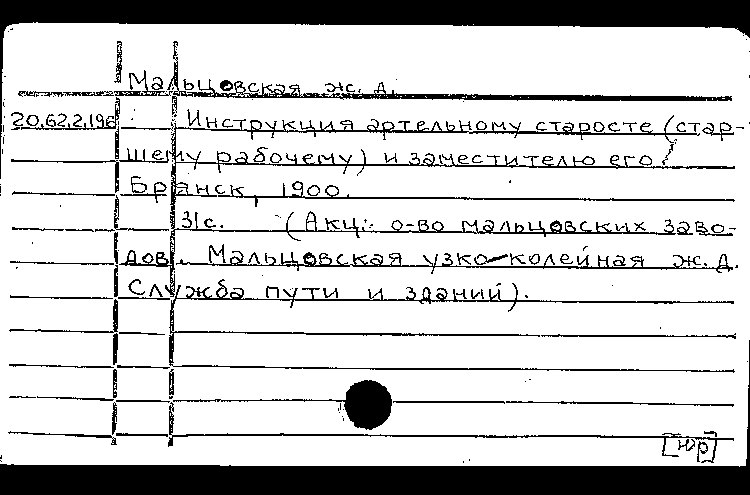 Мальцовская ж. д.
20.62.2.196 Инструкция артельному старосте (стар-
шему рабочему) и заместителю его.
Брянск, 1900.
31с. (Акц. о-во мальцовских заво-
дов. Мальцовская узко-колейная ж. д.
Служба пути и зданий).
[Юр]